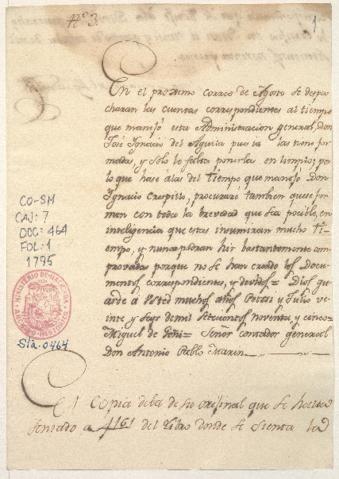 Nº 3.
1
En el proximo correo de Agosto se despa
charan las cuentas correspondientes al tiempo
que manejó esta Administracion general, Don
José Ignacio del Aguila pues ya las tiene for
madas, y solo le falta ponerlas en limpio; y por
lo que hase á las del tiempo que manejó Don
Ignacio Crespillo, procuraré tambien que se for
man con toda la brevedad que sea posible, en
inteligencia que estas insumiran mucho ti=
empo, y nunca podran hir bastantemente com
provadas porque no se han creado los Docu=
mentos correspondientes, y devidos= Dios gu
arde á Usted muchos años Potosi y Julio ve
inte y seys de mil setecientos noventa, y cinco=
Miguel de = Señor Contador general
Don Antonio Pablo Marin
CO-SM
CAJ: 7
DOC: 464
FOL: 1
1795
MINISTERIO DE HACIENDA
Sta. 0464
Es Copia de la de su original que se halla
sentado a 161 del Libro donde se sienta la